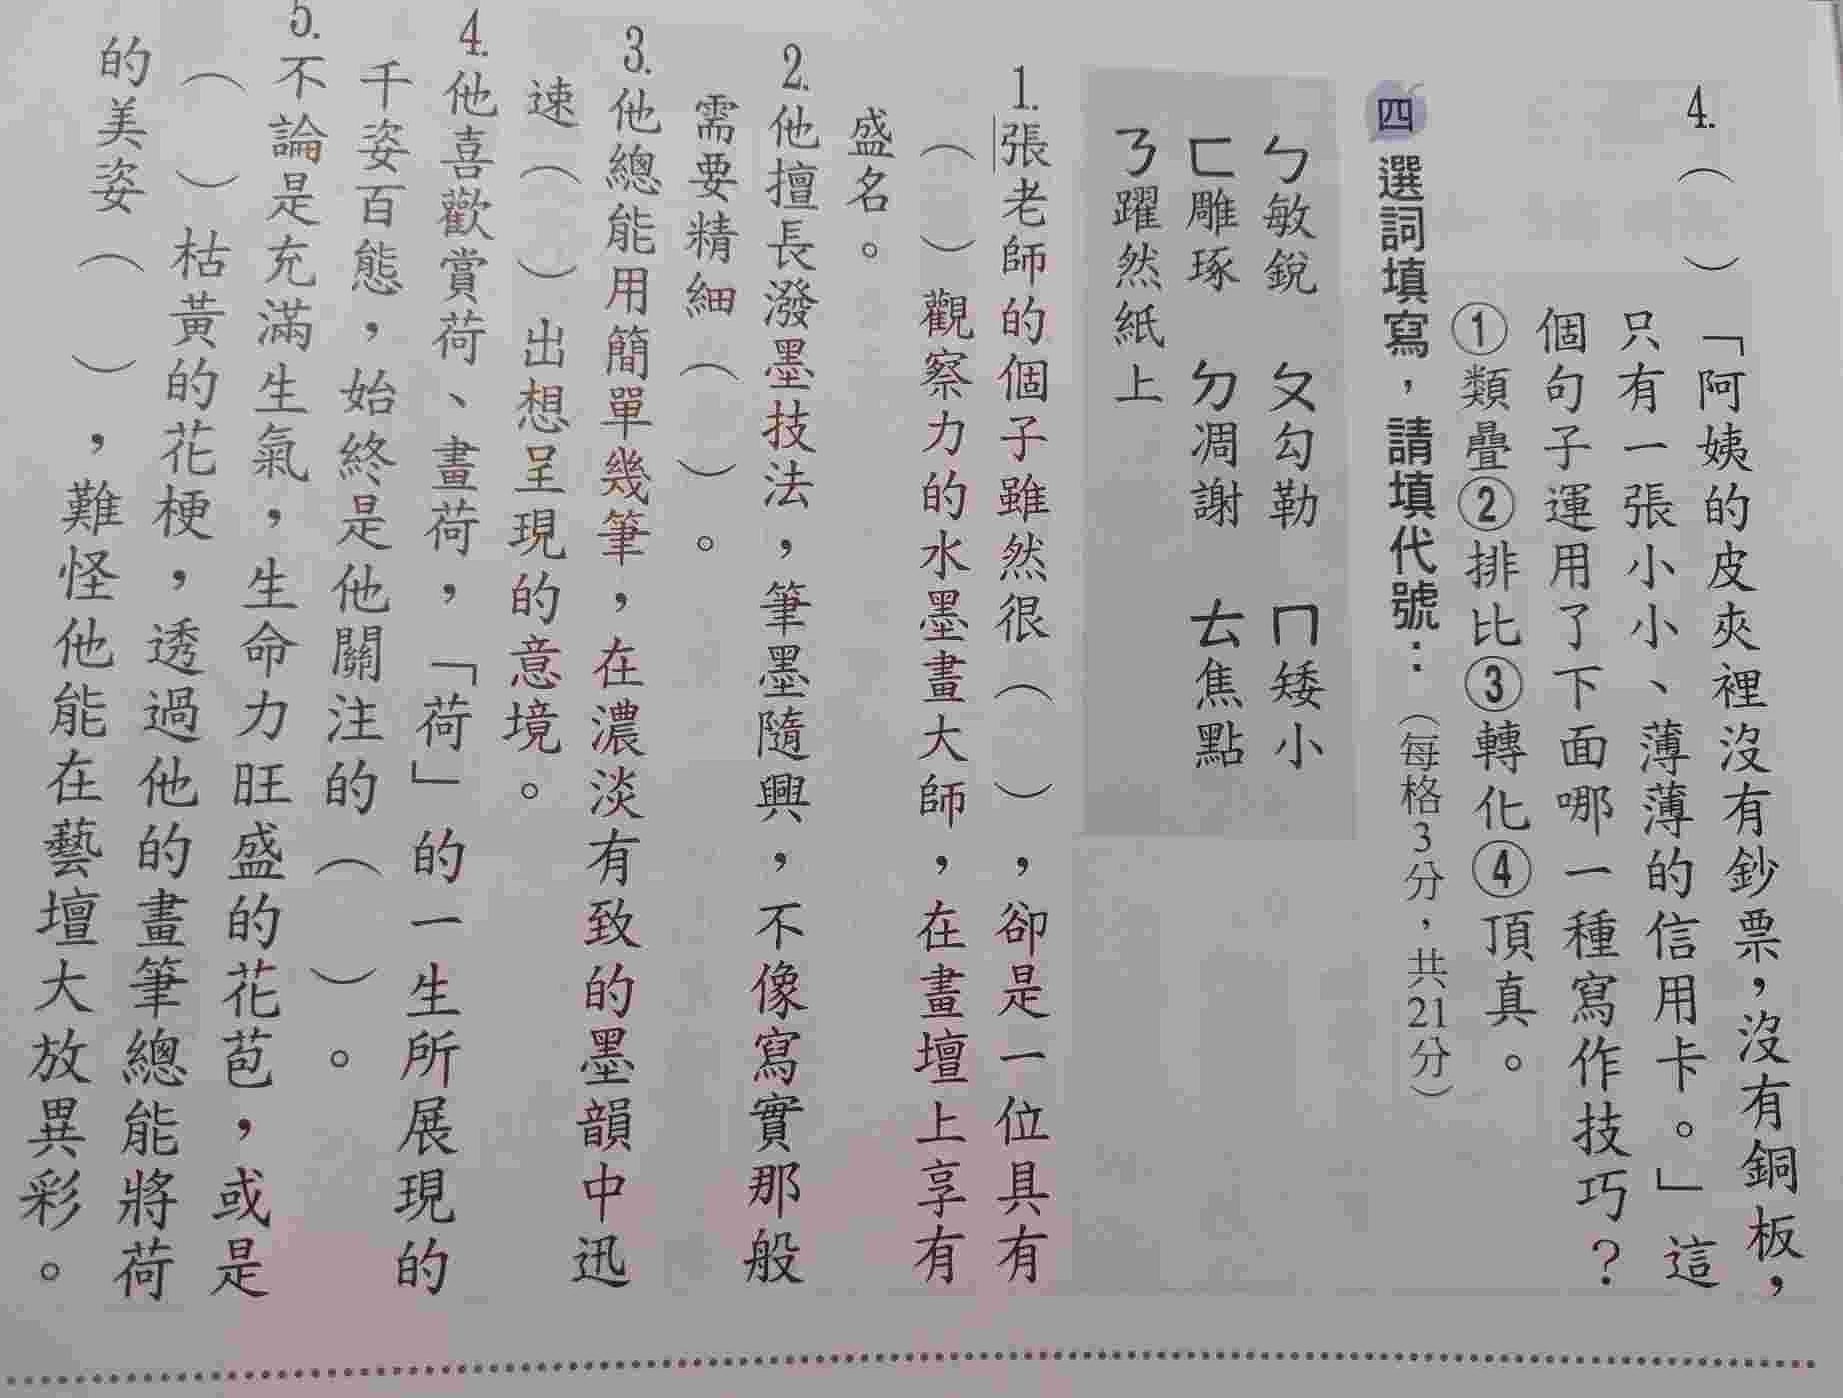 4.（　）「阿姨的皮夾裡沒有鈔票，沒有銅板，
只有一張小小、薄薄的信用卡。」這
個句子運用了下面哪一種寫作技巧？
①類疊②排比③轉化④頂真。
四 選詞填寫，請填代號：（每格3分，共21分）
ㄅ敏銳　ㄆ勾勒　ㄇ矮小
ㄈ雕琢　ㄉ凋謝　ㄊ焦點
ㄋ躍然紙上
1.張老師的個子雖然很（　），卻是一位具有
（　）觀察力的水墨畫大師，在畫壇上享有
盛名。
2.他擅長潑墨技法，筆墨隨興，不像寫實那般
需要精細（　）。
3.他總能用簡單幾筆，在濃淡有致的墨韻中迅
速（　）出想呈現的意境。
4.他喜歡賞荷、畫荷，「荷」的一生所展現的
千姿百態，始終是他關注的（　）。
5.不論是充滿生氣，生命力旺盛的花苞，或是
（　）枯黃的花梗，透過他的畫筆總能將荷
的美姿（　），難怪他能在藝壇大放異彩。